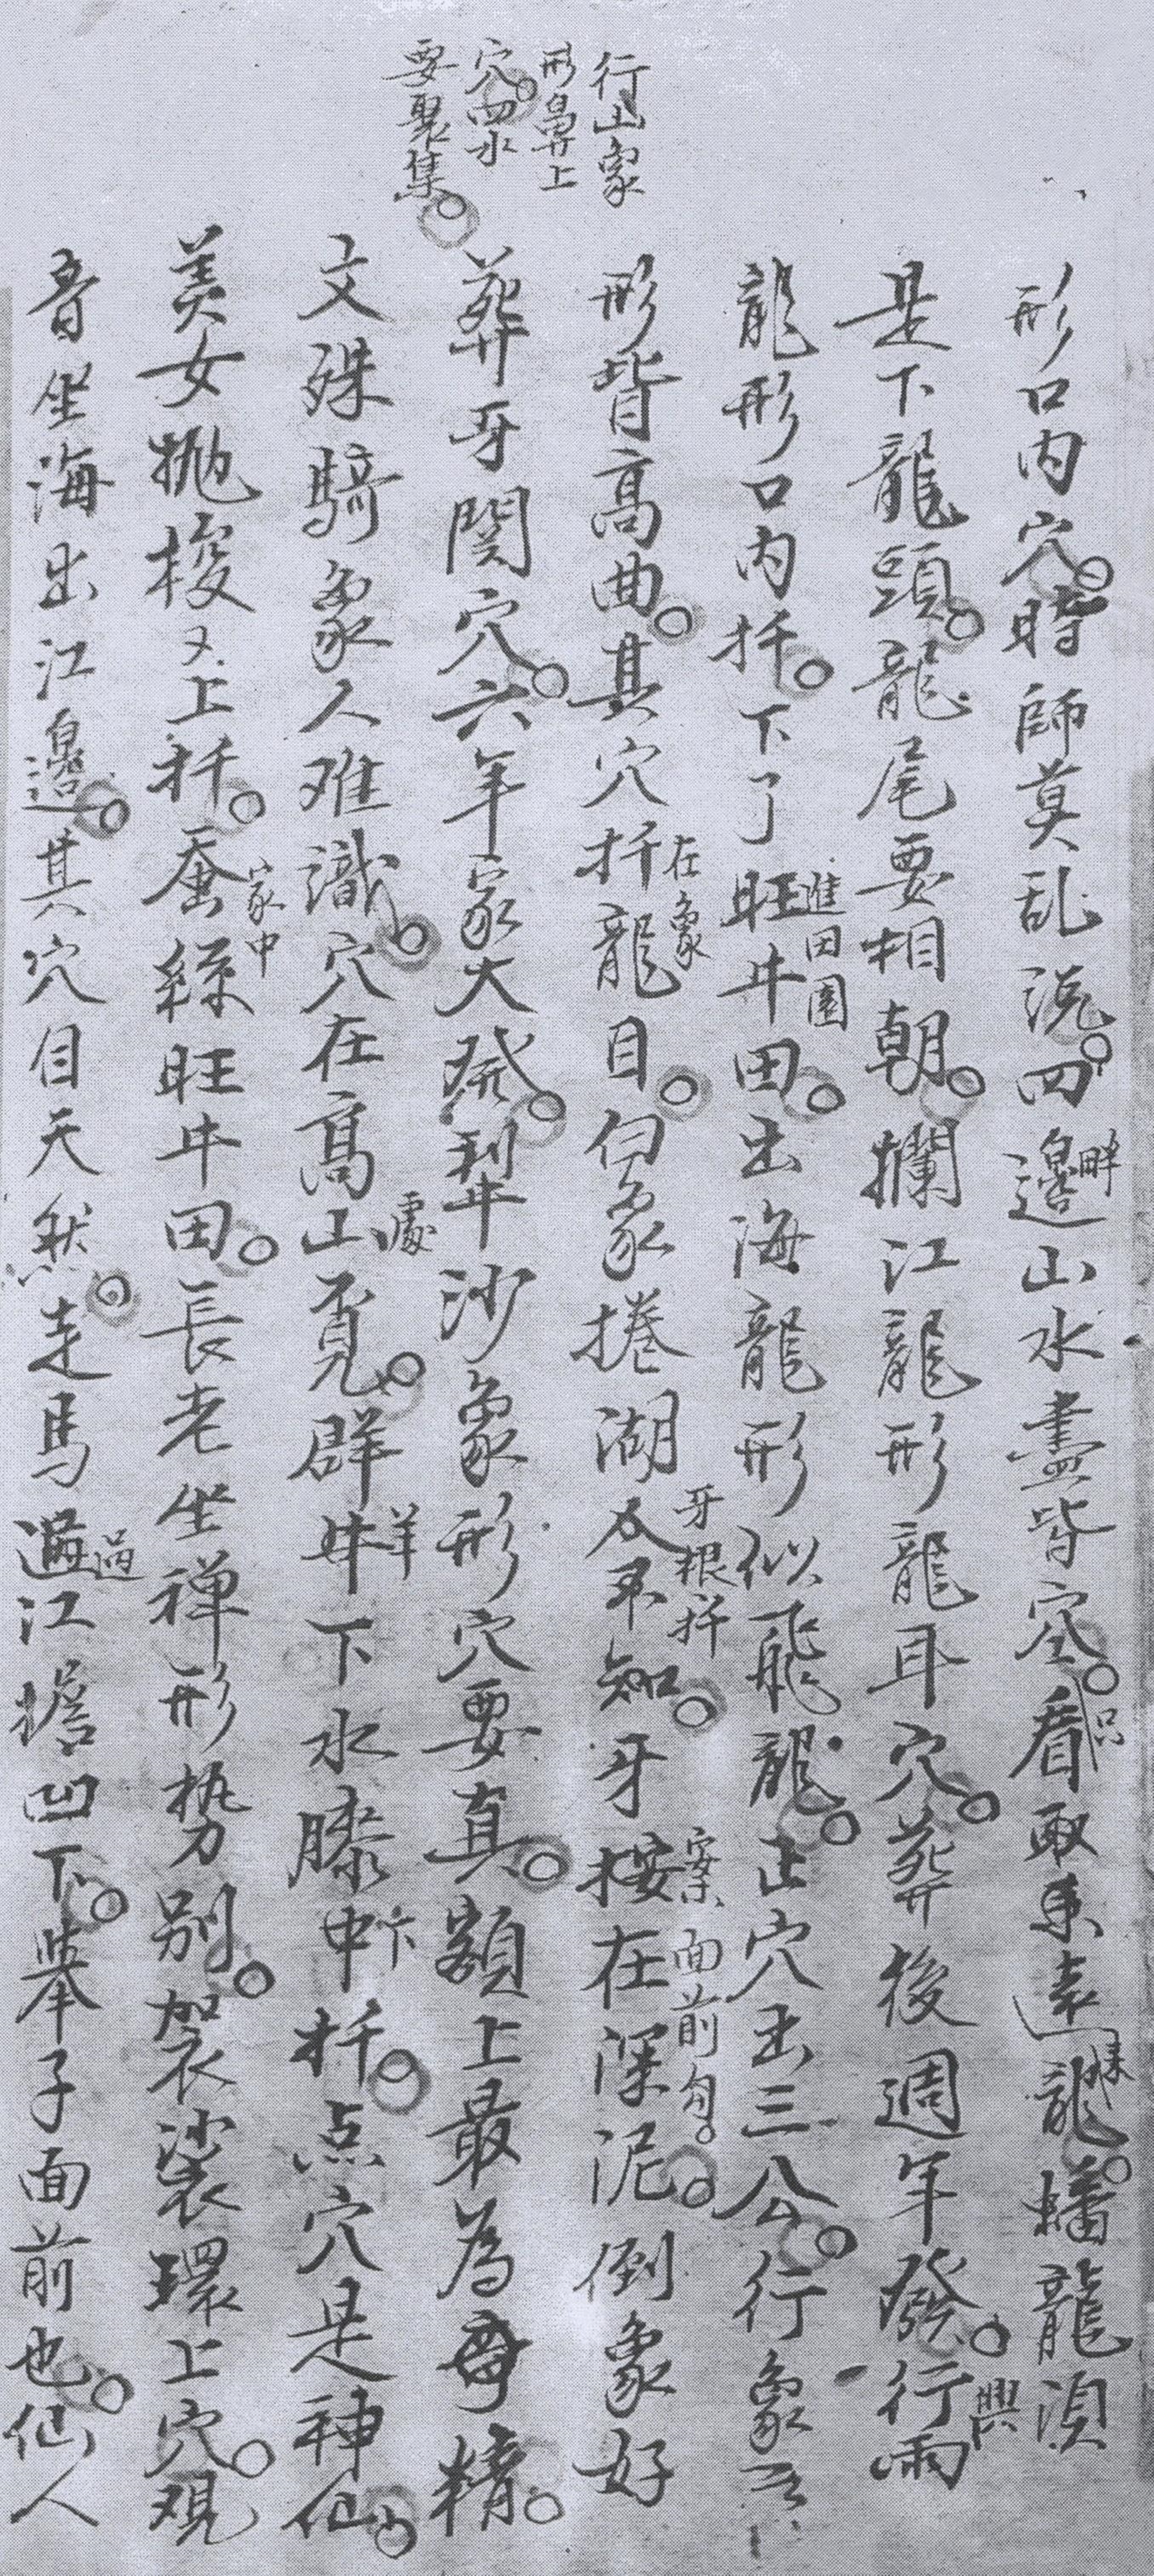 形口内穴。時師莫乱説。四邊山水盡皆空。看取東遠龍。蟠龍須
畔
只
様
是下龍頭。龍尾要相朝。攔江龍形龍耳穴。葬後週年發。行雨
興
龍形口内扦。下了旺牛田。出海龍形似飛龍。正穴出三公。行象
進田園
形背高曲。其穴扦龍目。伺象捲湖人不知。牙按在深泥。倒象好
在象
牙根扦
案面前勾。
行山象
形鼻上
穴。四水
要聚集。
葬牙関穴。六年家大発。犁沙象形穴要真。額上最為精。
文殊騎象人难識。穴在高山覓。群牛下水膝中扦。点穴是神仙。
處
羊
下
美女抛梭又上扦。蚕絲旺牛田。長老坐禅形势别。袈裟環上穴。觀
家中
音坐海出江邊。其穴自天然。走馬過江擔凹下。舉子面前也。仙人
過